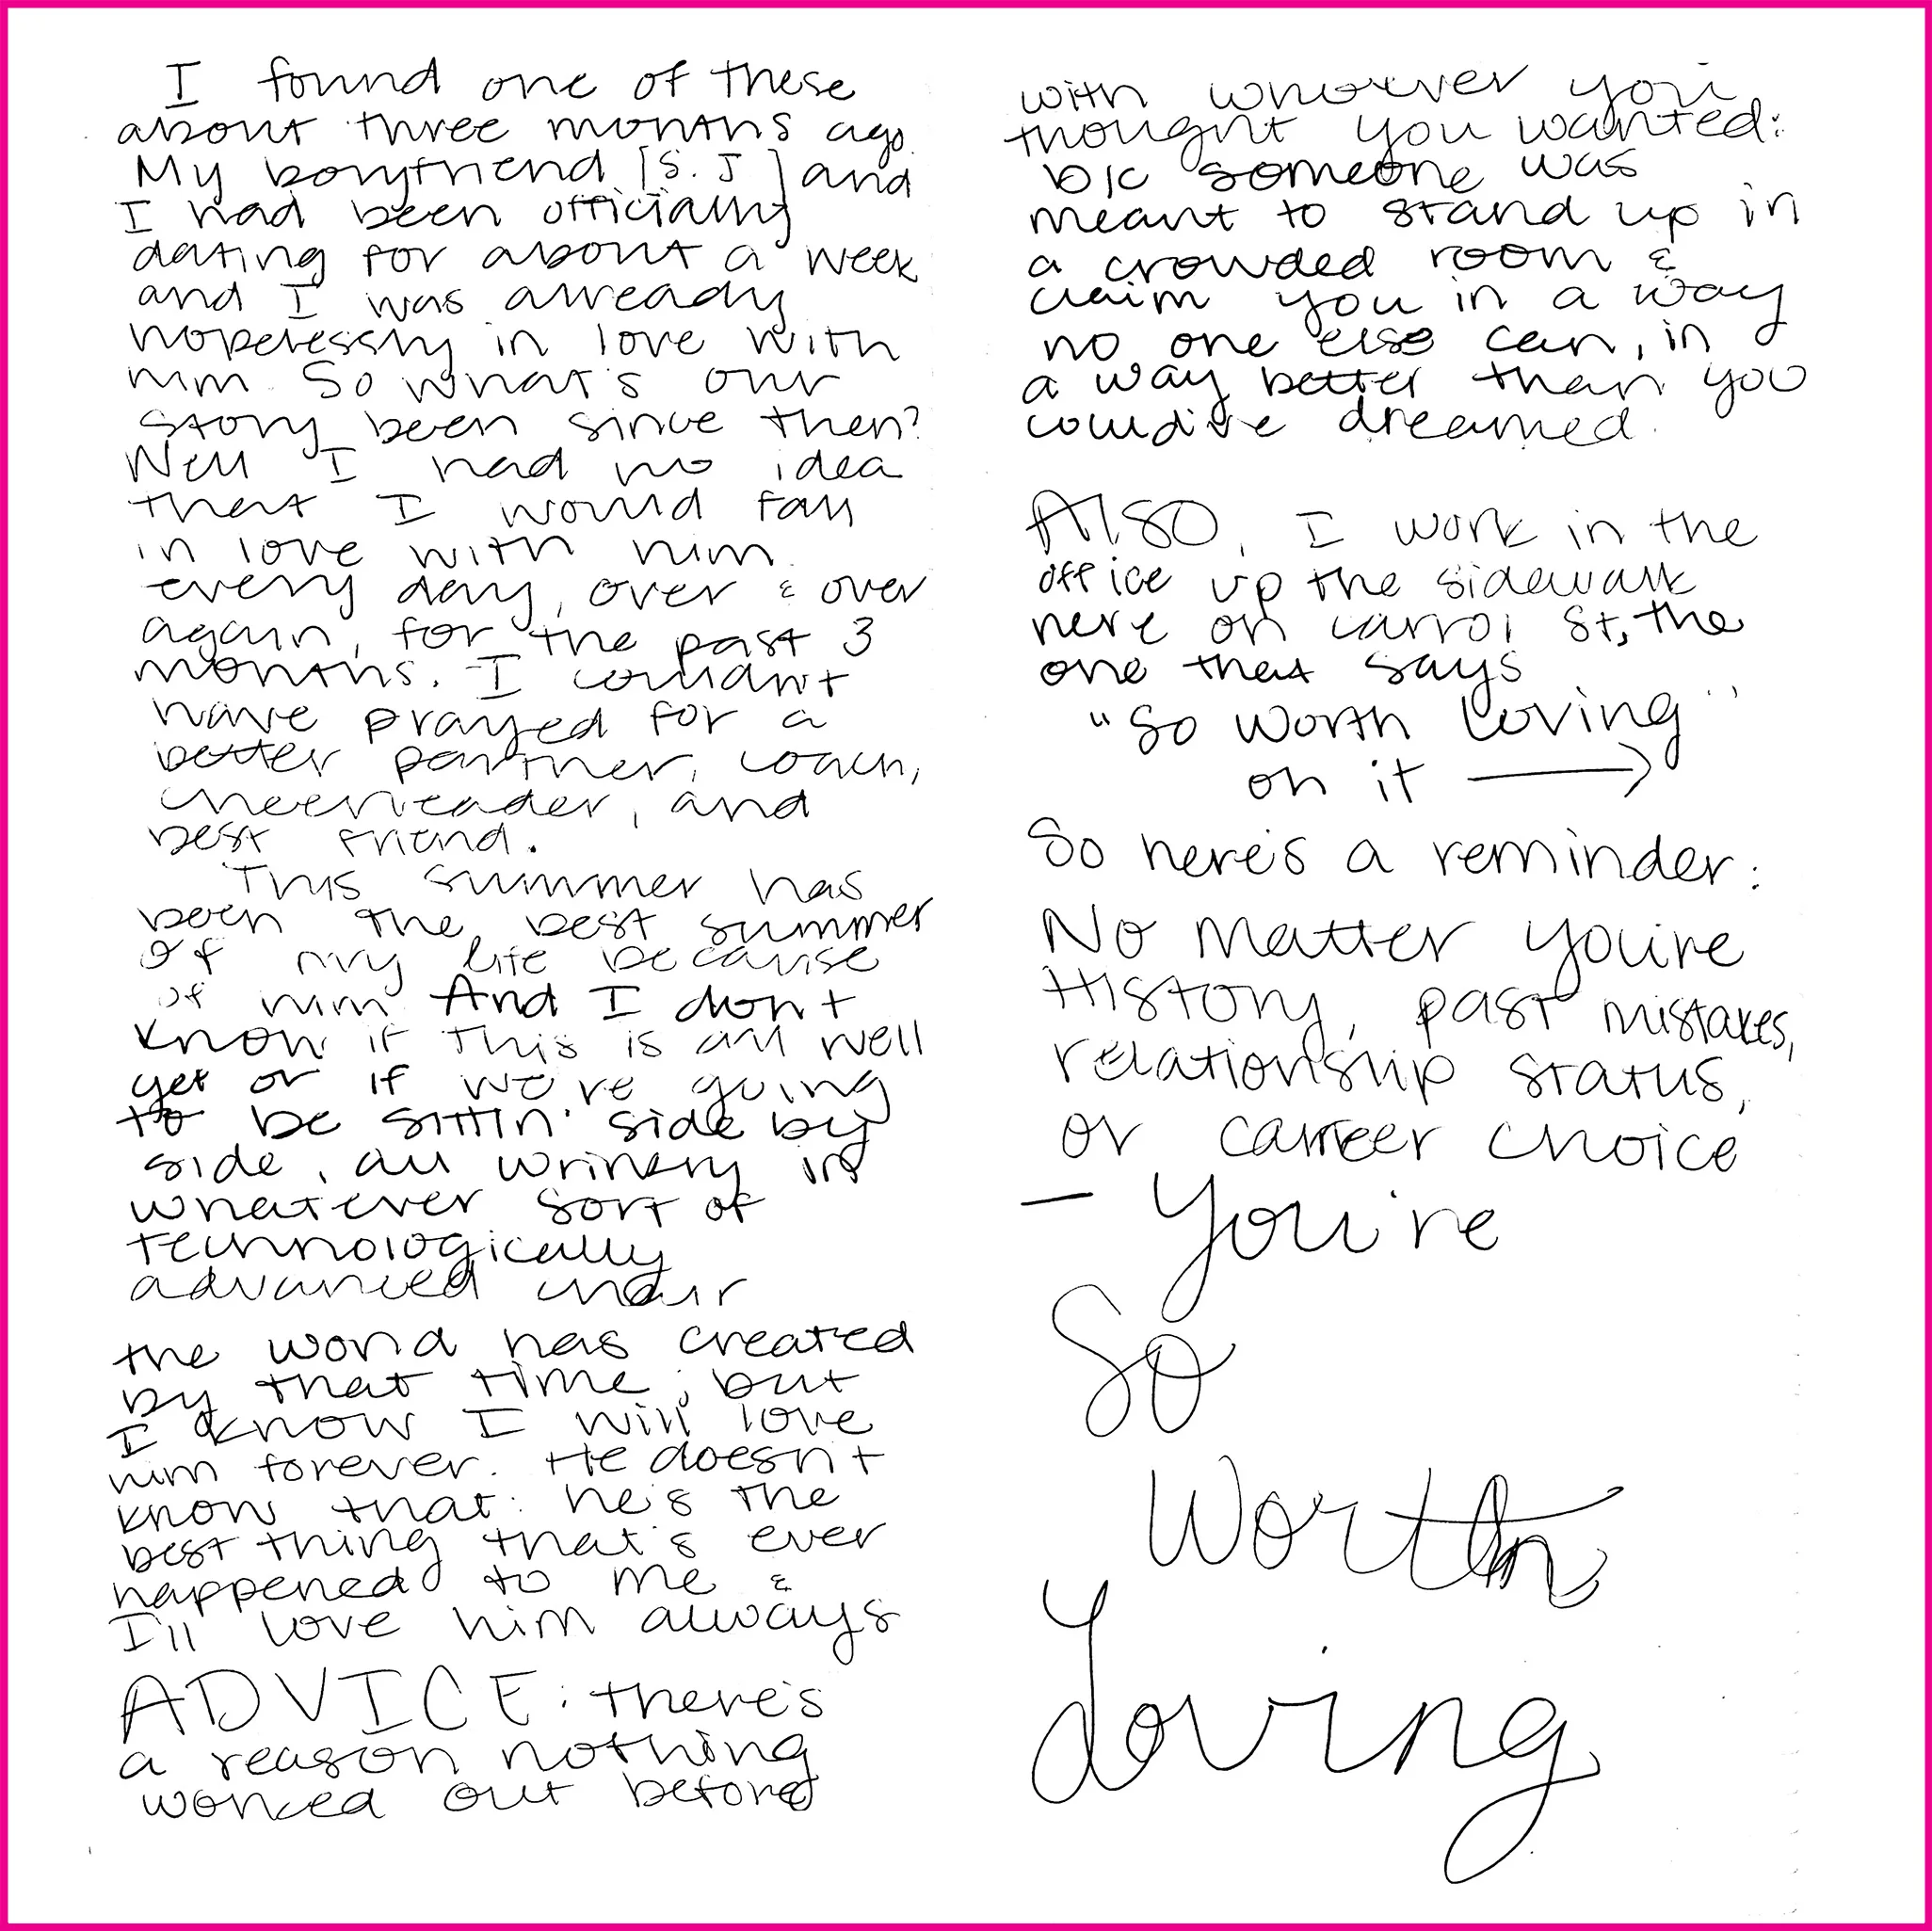 I found one of these
about three months ago.
My boyfriend [S.J ] and
I had been officially
dating for about a week
and I was already
hopelessly in love with
him. So what's our
story been since then?
Well I had no idea
that I would fall
in love with him
every day, over & over
again, for the past 3
months. I couldn't
have prayed for a
better partner, coach,
cheerleader, and
best friend.
This summer has
been the best summer
of my life because
of him. And I don't
know if this is all well
get or if we're going
to be sittin' side by
side, all wrinkly in
whatever sort of
technologically
advanced chair
the world has created
by that time, but
I know I will love
him forever. He doesn't
know that. he's the
best thing that's ever
happened to me &
I'll love him always
ADVICE: there's
a reason nothing
worked out before
with whoever you
thought you wanted:
b/c someone was
meant to stand up in
a crowded room &
claim you in a way
no one else can, in
a way better than you
could've dreamed.
Also, I work in the
office up the sidewalk
here on Carrol St, the
one that says
"So Worth Loving"
on it →
So here's a reminder:
No matter you're
History, past mistakes,
relationship status,
or career choice
- You're
So
Worth
Loving